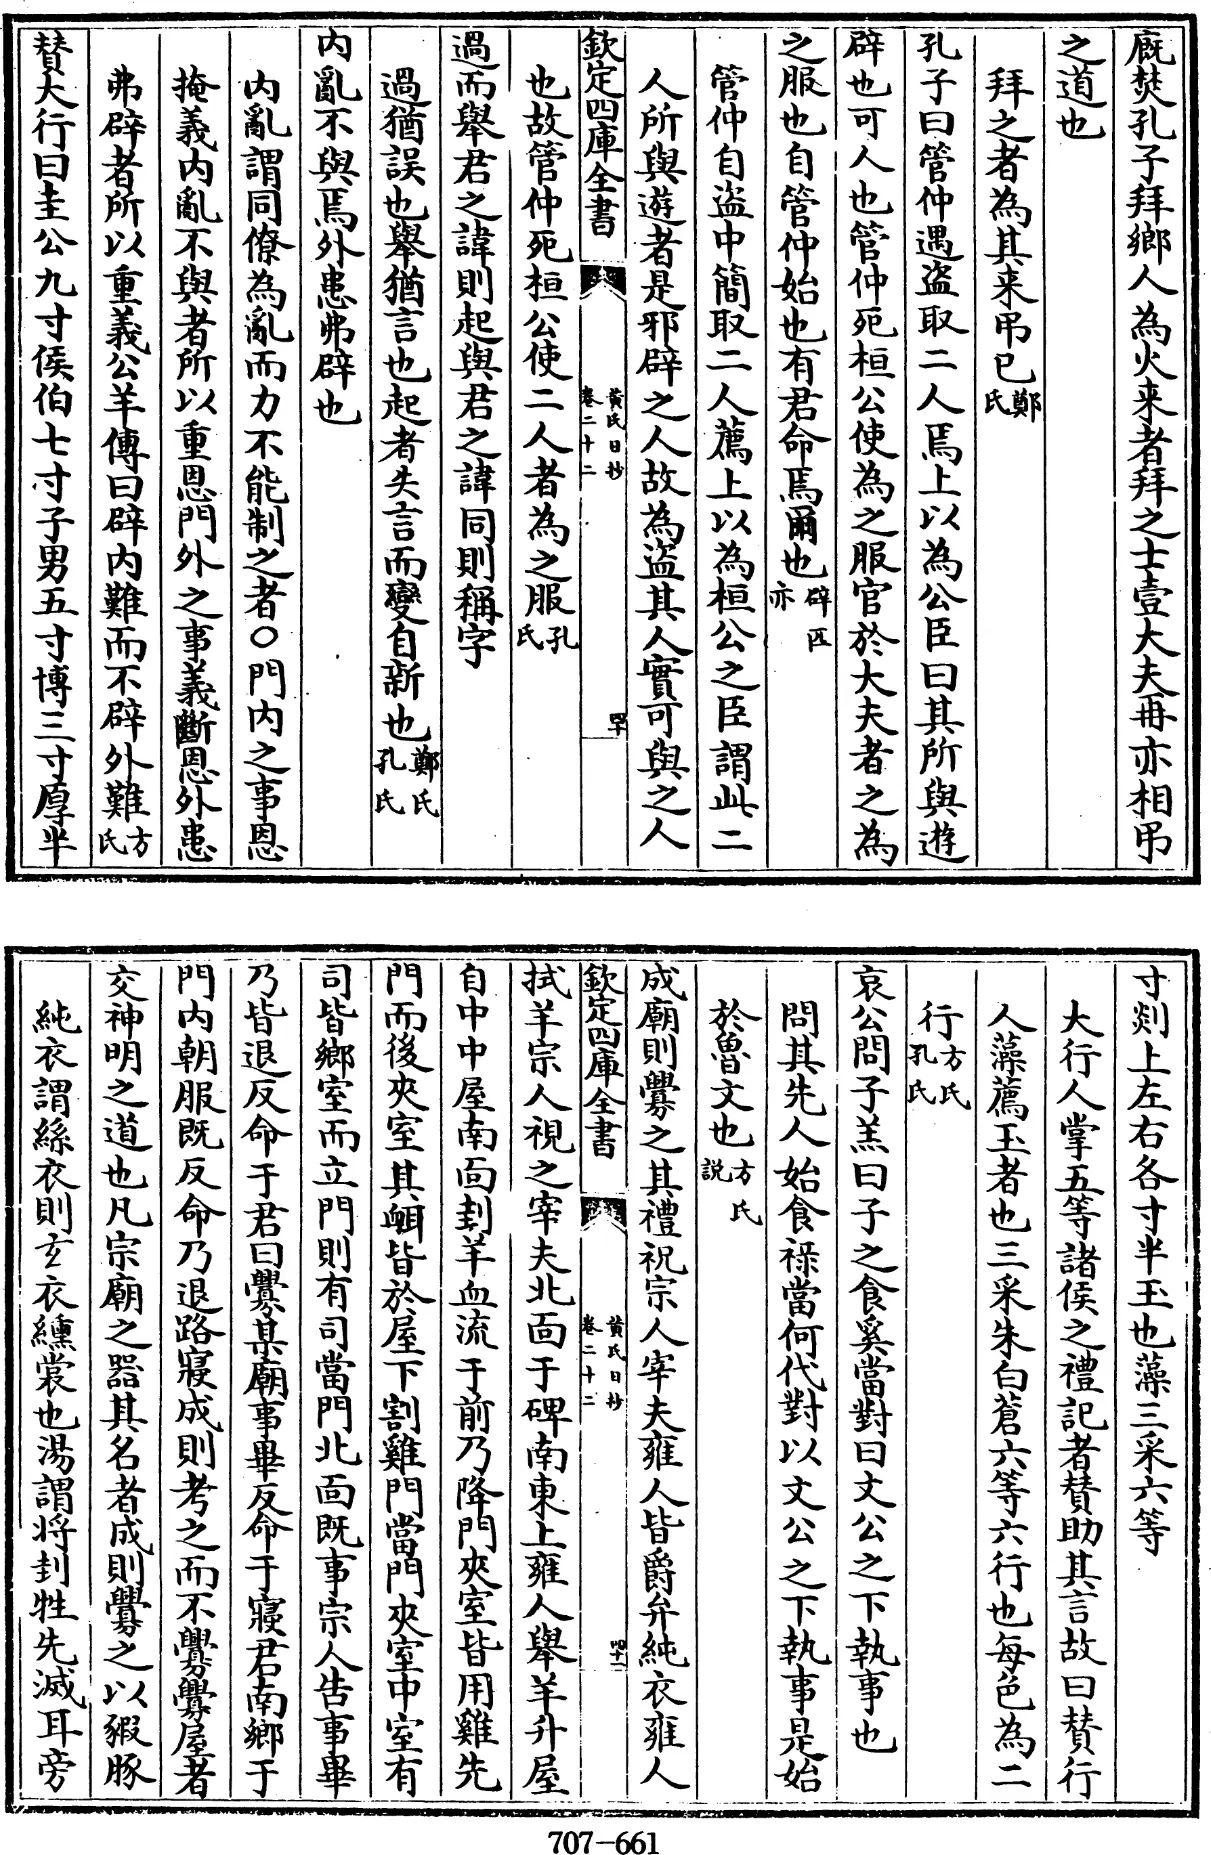 廐焚孔子拜鄉人為火来者拜之士壹大夫再亦相弔
之道也
拜之者為其来弔已鄭氏
孔子曰管仲遇盗取二人焉上以為公臣曰其所與遊
辟也可人也管仲死桓公使為之服官於大夫者之為
之服也自管仲始也有君命焉爾也辟匹亦
管仲自盗中簡取二人薦上以為桓公之臣謂此二
人所與遊者是邪辟之人故為盗其人實可與之人
欽定四庫全書
黄氏日抄
卷二十二
四十
也故管仲死桓公使二人者為之服孔氏
過而舉君之諱則起與君之諱同則稱字
過猶誤也舉猶言也起者失言而變自新也鄭氏孔氏
内亂不與焉外患弗辟也
内亂謂同僚為亂而力不能制之者○門内之事恩
掩義内亂不與者所以重恩門外之事義斷恩外患
弗辟者所以重義公羊傳曰辟内難而不辟外難方氏
賛大行曰圭公九寸侯伯七寸子男五寸博三寸厚半
寸剡上左右各寸半玉也藻三采六等
大行人掌五等諸侯之禮記者賛助其言故曰賛行
人藻薦玉者也三采朱白蒼六等六行也每色為二
行方氏孔氏
哀公問子羔曰子之食奚當對曰文公之下執事也
問其先人始食祿當何代對以文公之下執事是始
於魯文也方氏説
成廟則釁之其禮祝宗人宰夫雍人皆爵弁純衣雍人
欽定四庫全書
黄氏日抄
卷二十二
四十一
拭羊宗人視之宰夫北面于碑南東上雍人舉羊升屋
自中中屋南面刲羊血流于前乃降門夾室皆用雞先
門而後夾室其衈皆於屋下割雞門當門夾室中室有
司皆鄉室而立門則有司當門北面既事宗人告事畢
乃皆退反命于君曰釁某廟事畢反命于寢君南鄉于
門内朝服既反命乃退路寢成則考之而不釁釁屋者
交神明之道也凡宗廟之器其名者成則釁之以豭豚
純衣謂絲衣則玄衣纁裳也湯謂将刲牲先滅耳旁
707-661